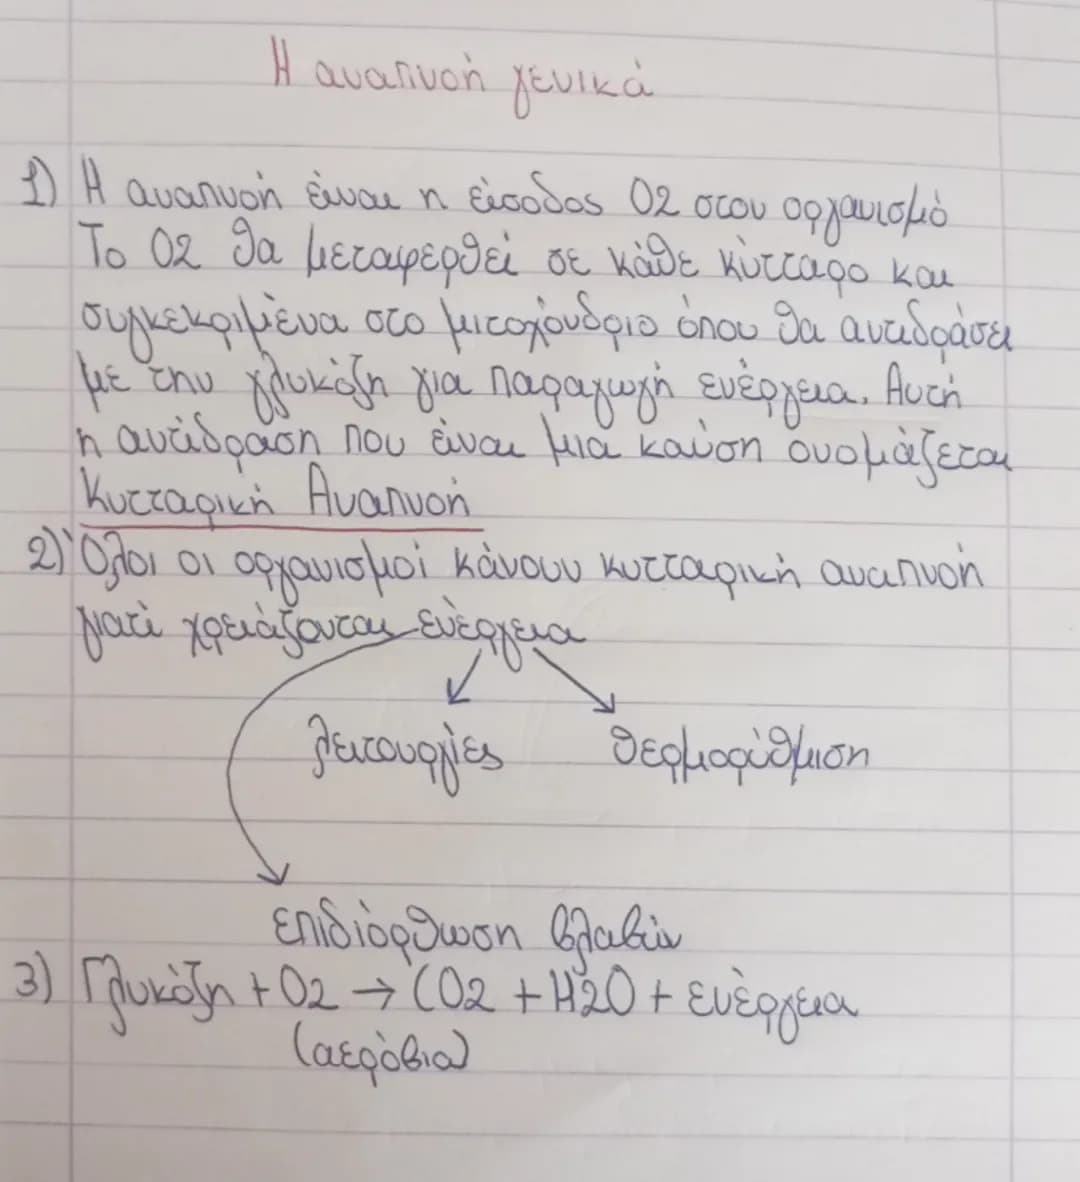 Η αναπνοή γενικά
1) Η αναπνοή είναι η είσοδος O2 στον οργανισμό
Το O2 θα μεταφερθεί σε κάθε κύτταρο και
συγκεκριμένα στο μιτοχόνδριο όπου θα αντιδράσει
με την γλυκόζη για παραγωγή ενέργεια. Αυτή
η αντίδραση που είναι μια καύση ονομάζεται
Κυτταρική Αναπνοή
2) Όλοι οι οργανισμοί κάνουν κυτταρική αναπνοή
γιατί χρειάζονται ενέργεια
λειτουργίες θερμορύθμιση
επιδιόρθωση βλαβών
3) Γλυκόζη + O2 → CO2 + H2O + ενέργεια
(αερόβια)